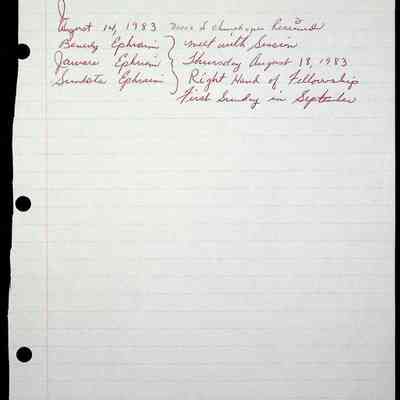 August 14, 1983 Received
Beverly Ephraim } meet with Session
Jawara Ephraim } Thursday August 18, 1983
Sundata Ephraim } Right Hand of Fellowship
First Sunday in September